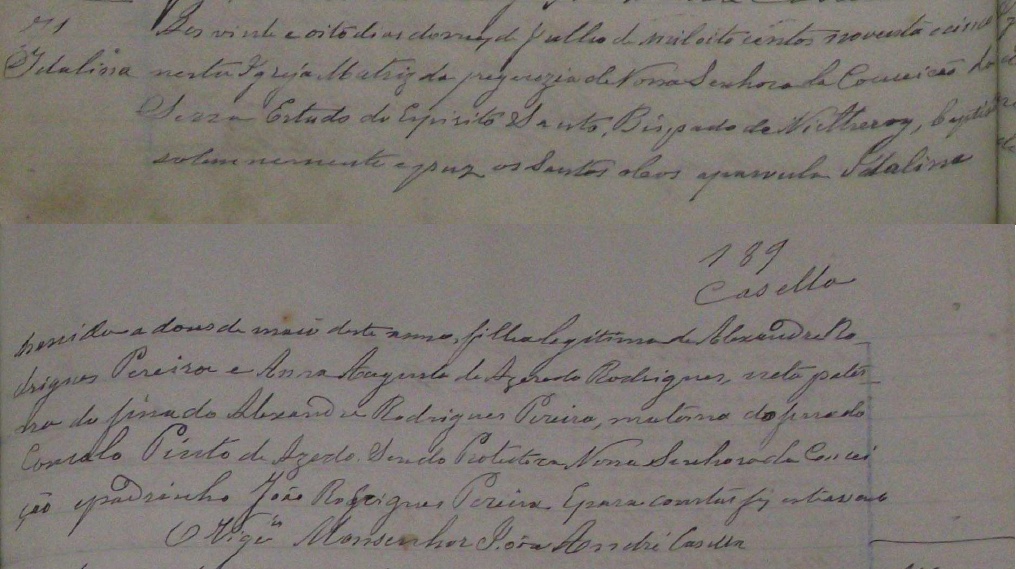 71
Idalina
Aos vinte e oito dias do mez de Julho de mil oito centos noventa e cinco
nesta Igreja Matriz da freguezia de Nossa Senhora da Conceição da
Serra Estado do Espirito Santo, Bispado de Nictheroy, baptisei
solemnemente e puz os Santos oleos a parvula Idalina
189
Casella
nascida a dous de maio deste anno, filha legitima de Alexandre Ro-
drigues Pereira e Anna Augusta de Azeredo Rodrigues, neta pater-
na do finado Alexandre Rodrigues Pereira, materna do finado
Gonçalo Pinto de Azedo. Sendo Protectora Nossa Senhora da Concei
ção e padrinho João Rodrigues Pereira. E para constar fiz este assento
O Vigrio Monsenhor João André Casella